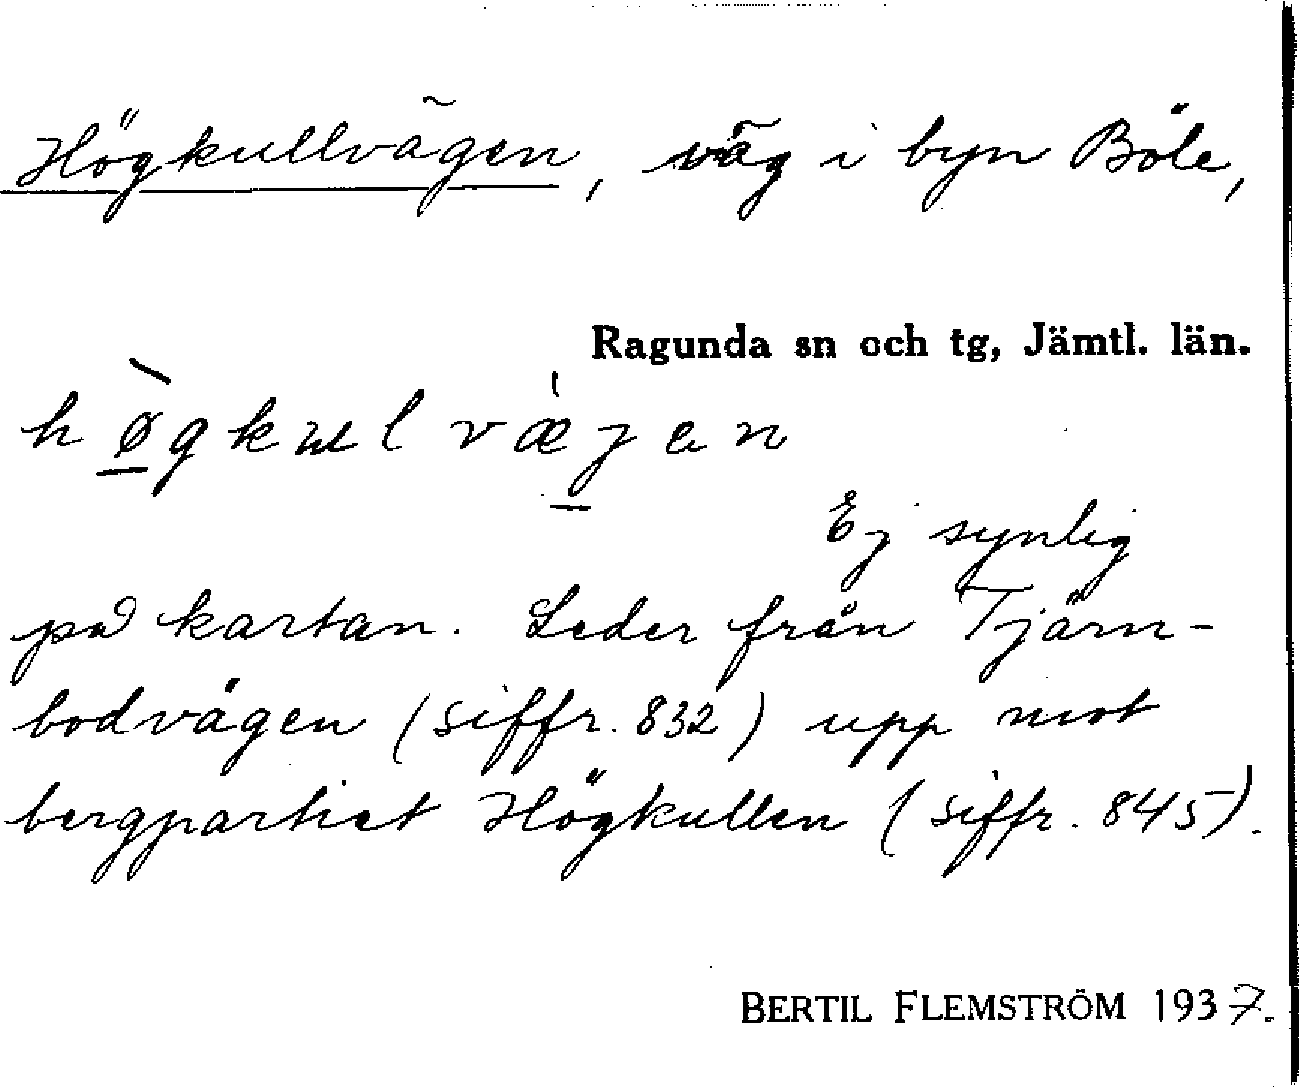 Högkullvägen, väg i byn Böle,
Ragunda sn och tg, Jämtl. län.
hø̲̀gkulvǽ̲jen
Ej synlig
på kartan. Leder från Tjärn-
bodvägen (siffr. 832) upp mot
bergpartiet Högkullen (siffr. 845).
BERTIL FLEMSTRÖM 1937.